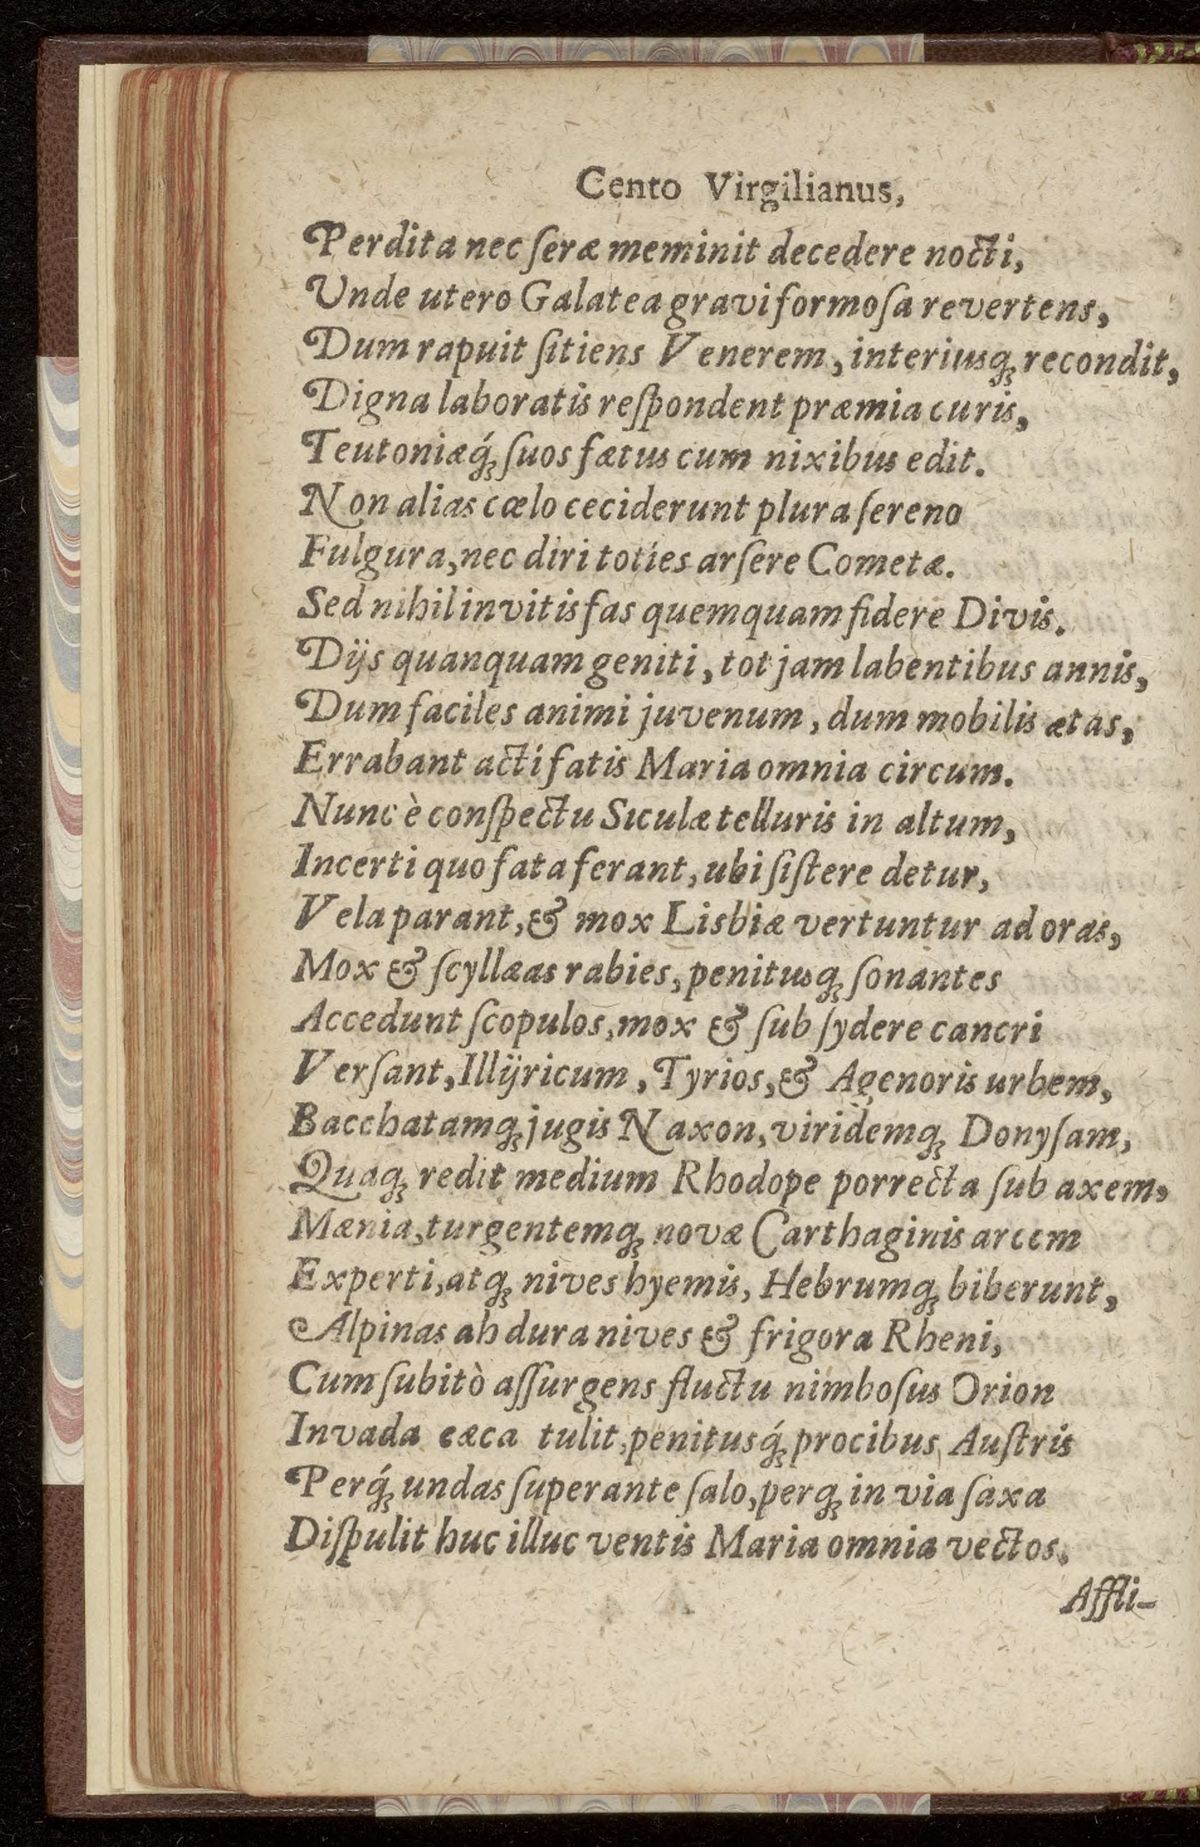 Cento Virgilianus,
Perdita nec ſeræ meminit decedere nocti,
Unde utero Galatea gravi formoſa revertens,
Dum rapuit ſitiens Venerem, interiusq́; recondit,
Digna laboratis reſpondent præmia curis,
Teutoniæq́; ſuos fætus cum nixibus edit.
Non alias cœlo ceciderunt plura ſereno
Fulgura, nec diri toties arſere Cometæ.
Sed nihil invitis fas quemquam fidere Divis.
Dijs quanquam geniti, tot jam labentibus annis,
Dum faciles animi juvenum, dum mobilis ætas,
Errabant acti fatis Maria omnia circum.
Nunc è conſpectu Siculæ telluris in altum,
Incerti quo fata ferant, ubi ſiſtere detur,
Vela parant, & mox Lisbiæ vertuntur ad oras,
Mox & ſcyllæas rabies, penitusq; ſonantes
Accedunt ſcopulos, mox & ſub ſydere cancri
Verſant, Illijricum, Tyrios, & Agenoris urbem,
Bacchatamq; jugis Naxon, viridemq; Donyſam,
Quaq; redit medium Rhodope porrecta ſub axem,
Mænia, turgentemq; novæ Carthaginis arcem
Experti, atq; nives hyemis, Hebrumq; biberunt,
Alpinas ah dura nives & frigora Rheni,
Cum ſubitò aſſurgens fluctu nimboſus Orion
In vada cæca tulit, penitusq́; procibus Auſtris
Perq́; undas ſuperante ſalo, perq; in via ſaxa
Diſpulit huc illuc ventis Maria omnia vectos.
Affli-